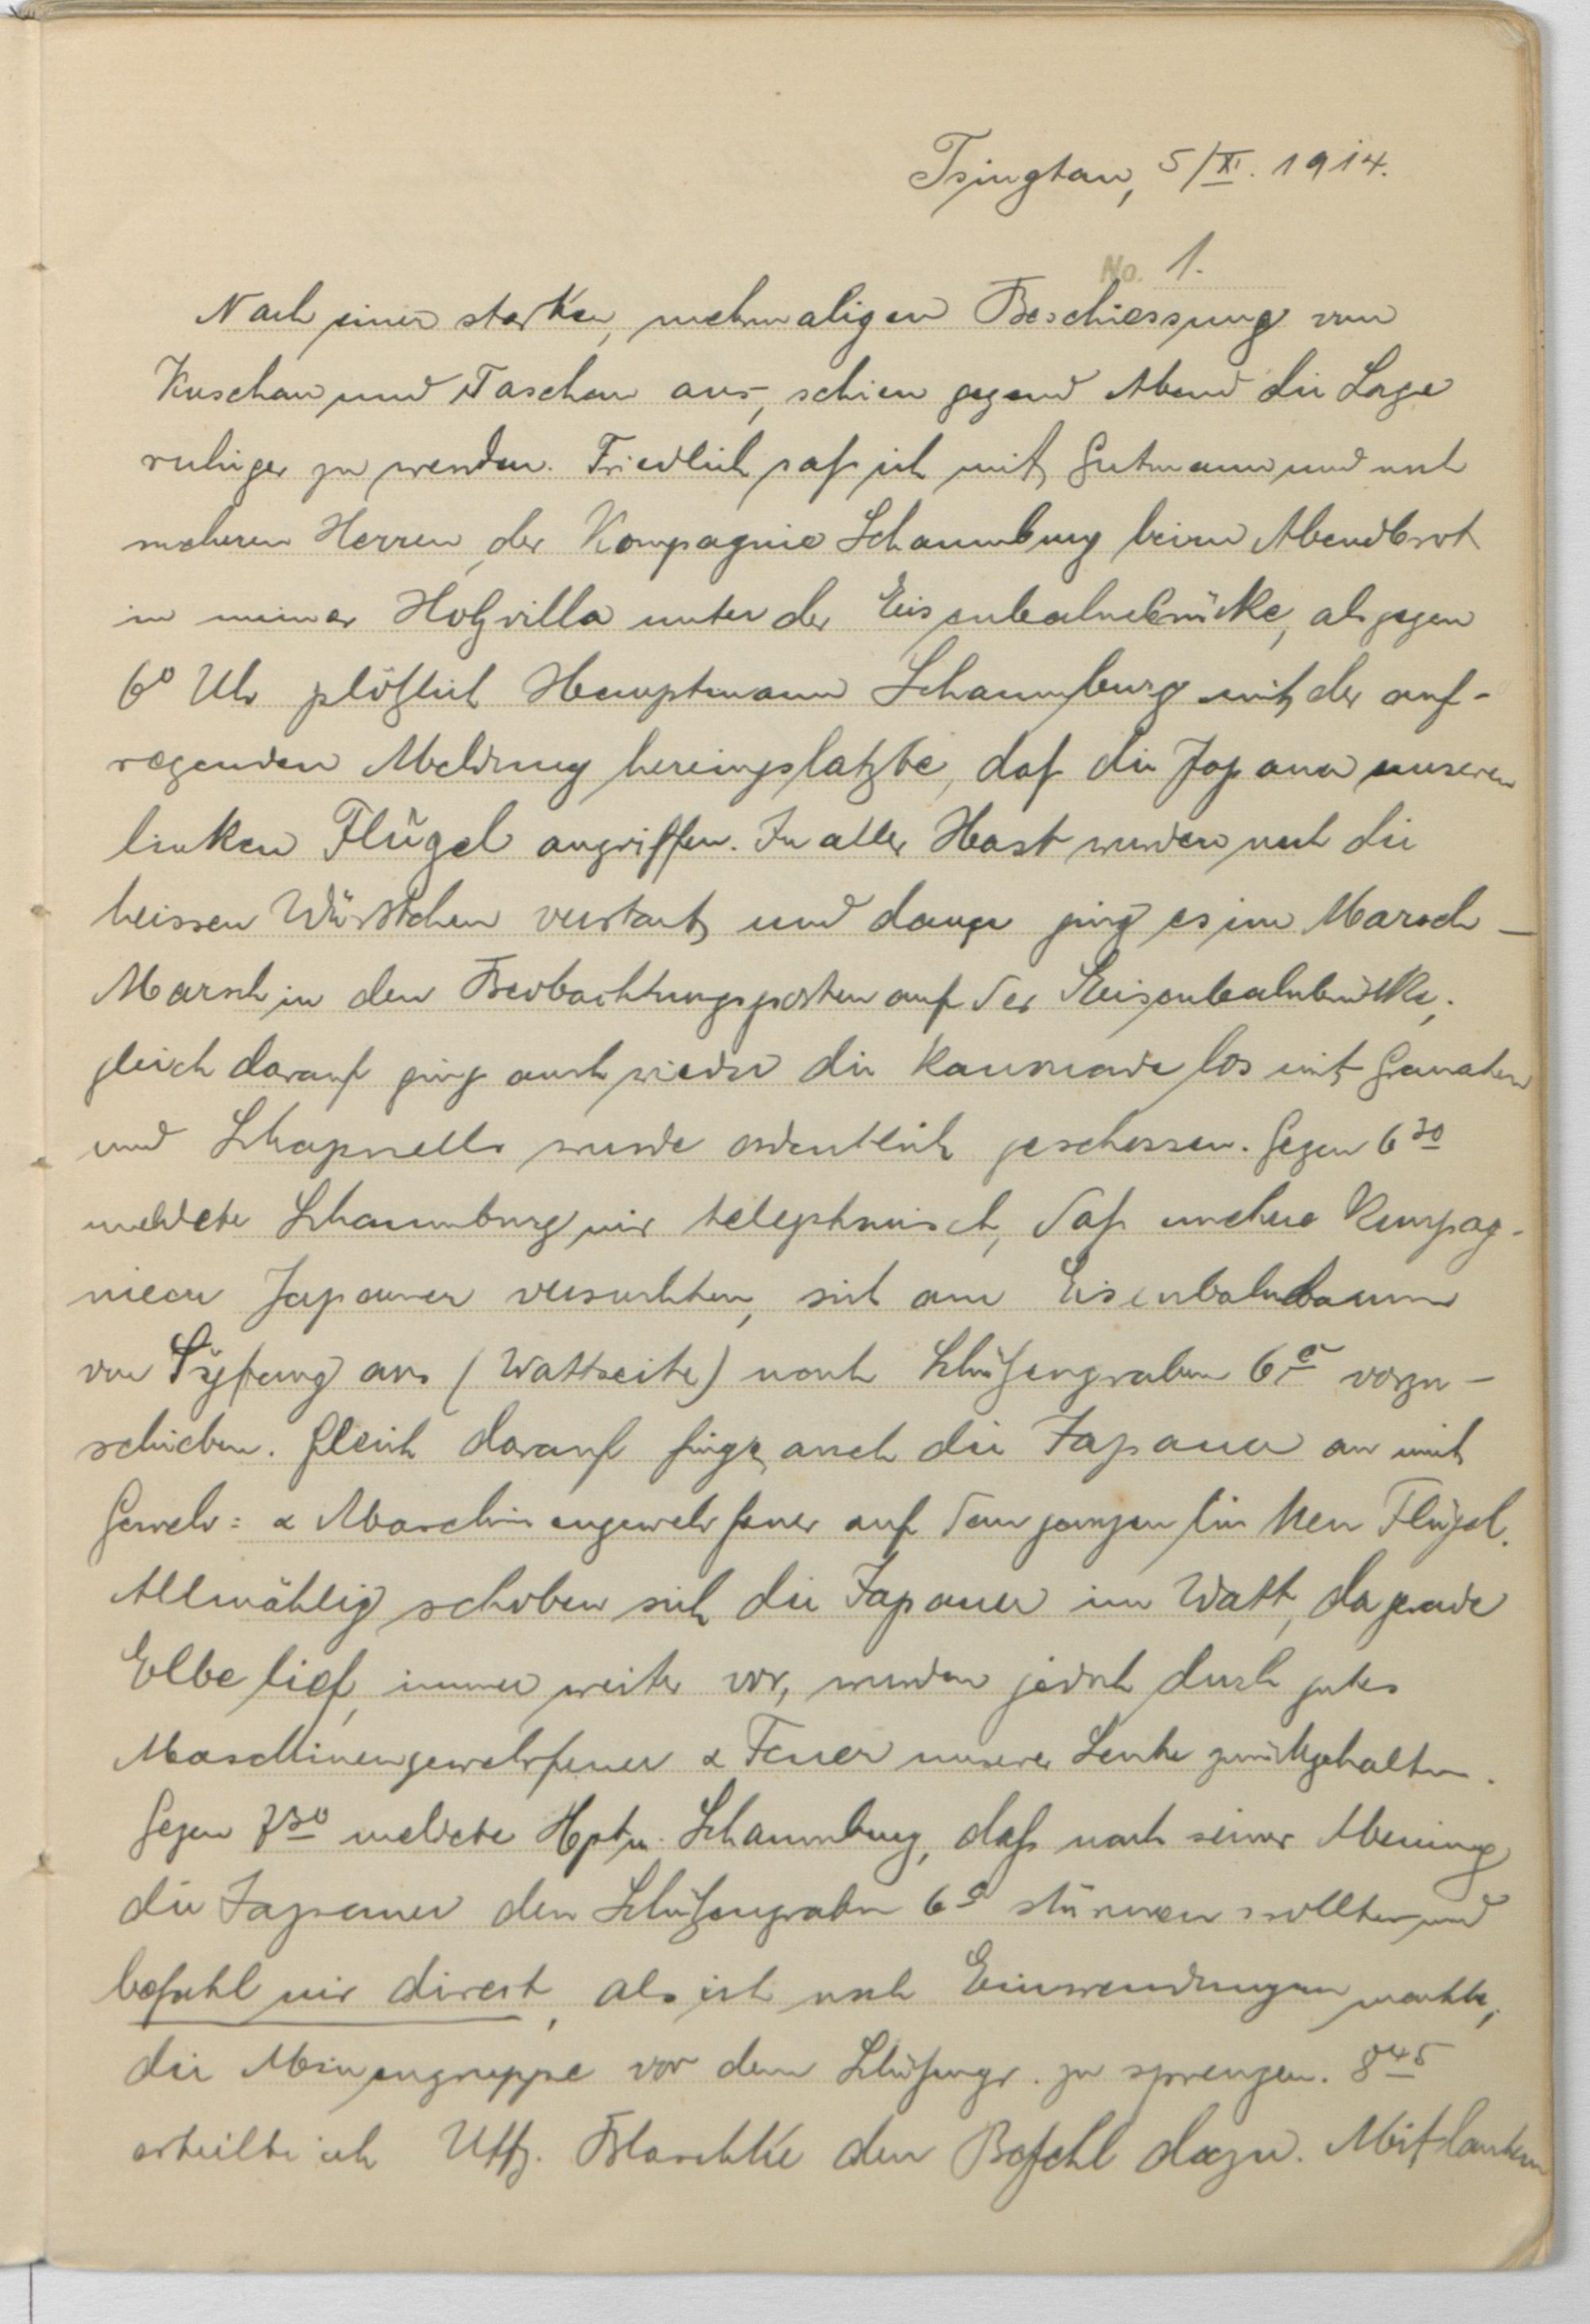 Tsingtau, 5/XI. 1914.
No. 1.
Nach einer starken, mehrmaligen Beschiessung von
Kuschan und Taschan aus, schien gegend Abend die Lage
ruhiger zu werden. Friedlich saß ich mit Gutmann und noch
meheren Herren der Kompagnie Schaumburg beim Abendbrot
in meiner Holzvilla unter der Eisenbahnbrücke, als gegen
6⁰ Uhr plötzlich Hauptmann Schaumburg mit der auf-
regenden Meldung hereinplatzte, daß die Japaner unseren
linken Flügel angriffen. In aller Hast wurden noch die
heissen Würstchen verstaut und dann ging es im Marsch-
Marsch in den Beobachtungsposten auf der Eisenbahnbrücke;
gleich darauf ging auch wieder die Kanonade los mit Granaten
und Schapnells wurde ordentlich geschossen. Gegen 6³⁰
meldete Schaumburg mir telephonisch, daß mehere Kompag-
nieen Japaner versuchten, sich am Eisenbahndamm
von Syfang aus (Wattseite) nach Schützengraben 6ᵉ vorzu-
schieben. Gleich darauf fingen auch die Japaner an mit
Gewehr= & Maschinengewehrfeuer auf den ganzen linken Flügel.
Allmählig schoben sich die Japaner im Watt, da gerade
Ebbe lief, immer weiter vor, wurden jedoch durch gutes
Maschinengewehrfeuer & Feuer unserer Leute zurückgehalten.
Gegen 7³⁰ meldete Hptm. Schaumburg, daß nach seiner Meinung
die Japaner den Schützengraben 6ᵉ stürmen wollten und
befahl mir direct, als ich noch Einwendungen machte,
die Minengruppe vor dem Schützengr. zu sprengen. 8⁴⁵
erteilte ich Uffz. Blaschke den Befehl dazu. Mit lautem